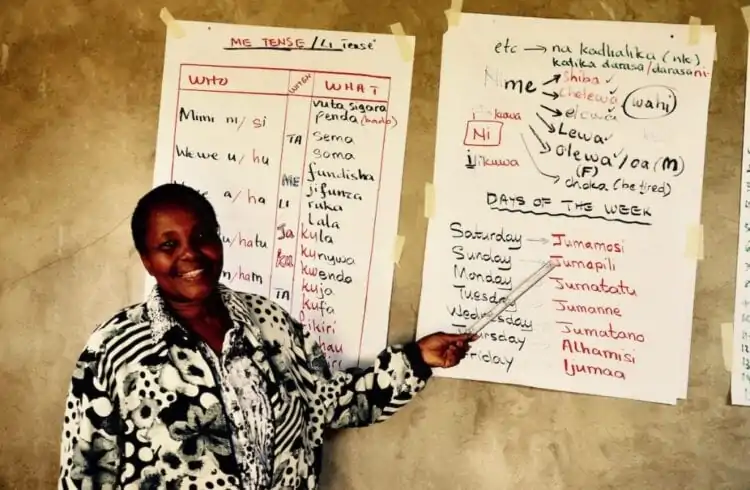 ME TENSE/LI Tense
WHO WHEN WHAT
vuta sigara
Mimi ni/si penda (bado)
TA sema
Wewe u/hu soma
ME fundisha
a/ha jifunza
LI ruka
lala
u/hatu Ja kula
ka kunywa
m/ham kwenda
TA kuja
kufa
fikiri
etc → na kadhalika (nk)
katika darasa/darasani
Nime shiba ✓
chelewa ✓ wahi
elewa
Lewa ✓
Ni olewa ✓/oa (M)
(F)
ilikuwa choka (be tired)
DAYS OF THE WEEK
Saturday → Jumamosi
Sunday → Jumapili
Monday Jumatatu
Tuesday Jumanne
Wednesday Jumatano
Thursday Alhamisi
Friday Ijumaa